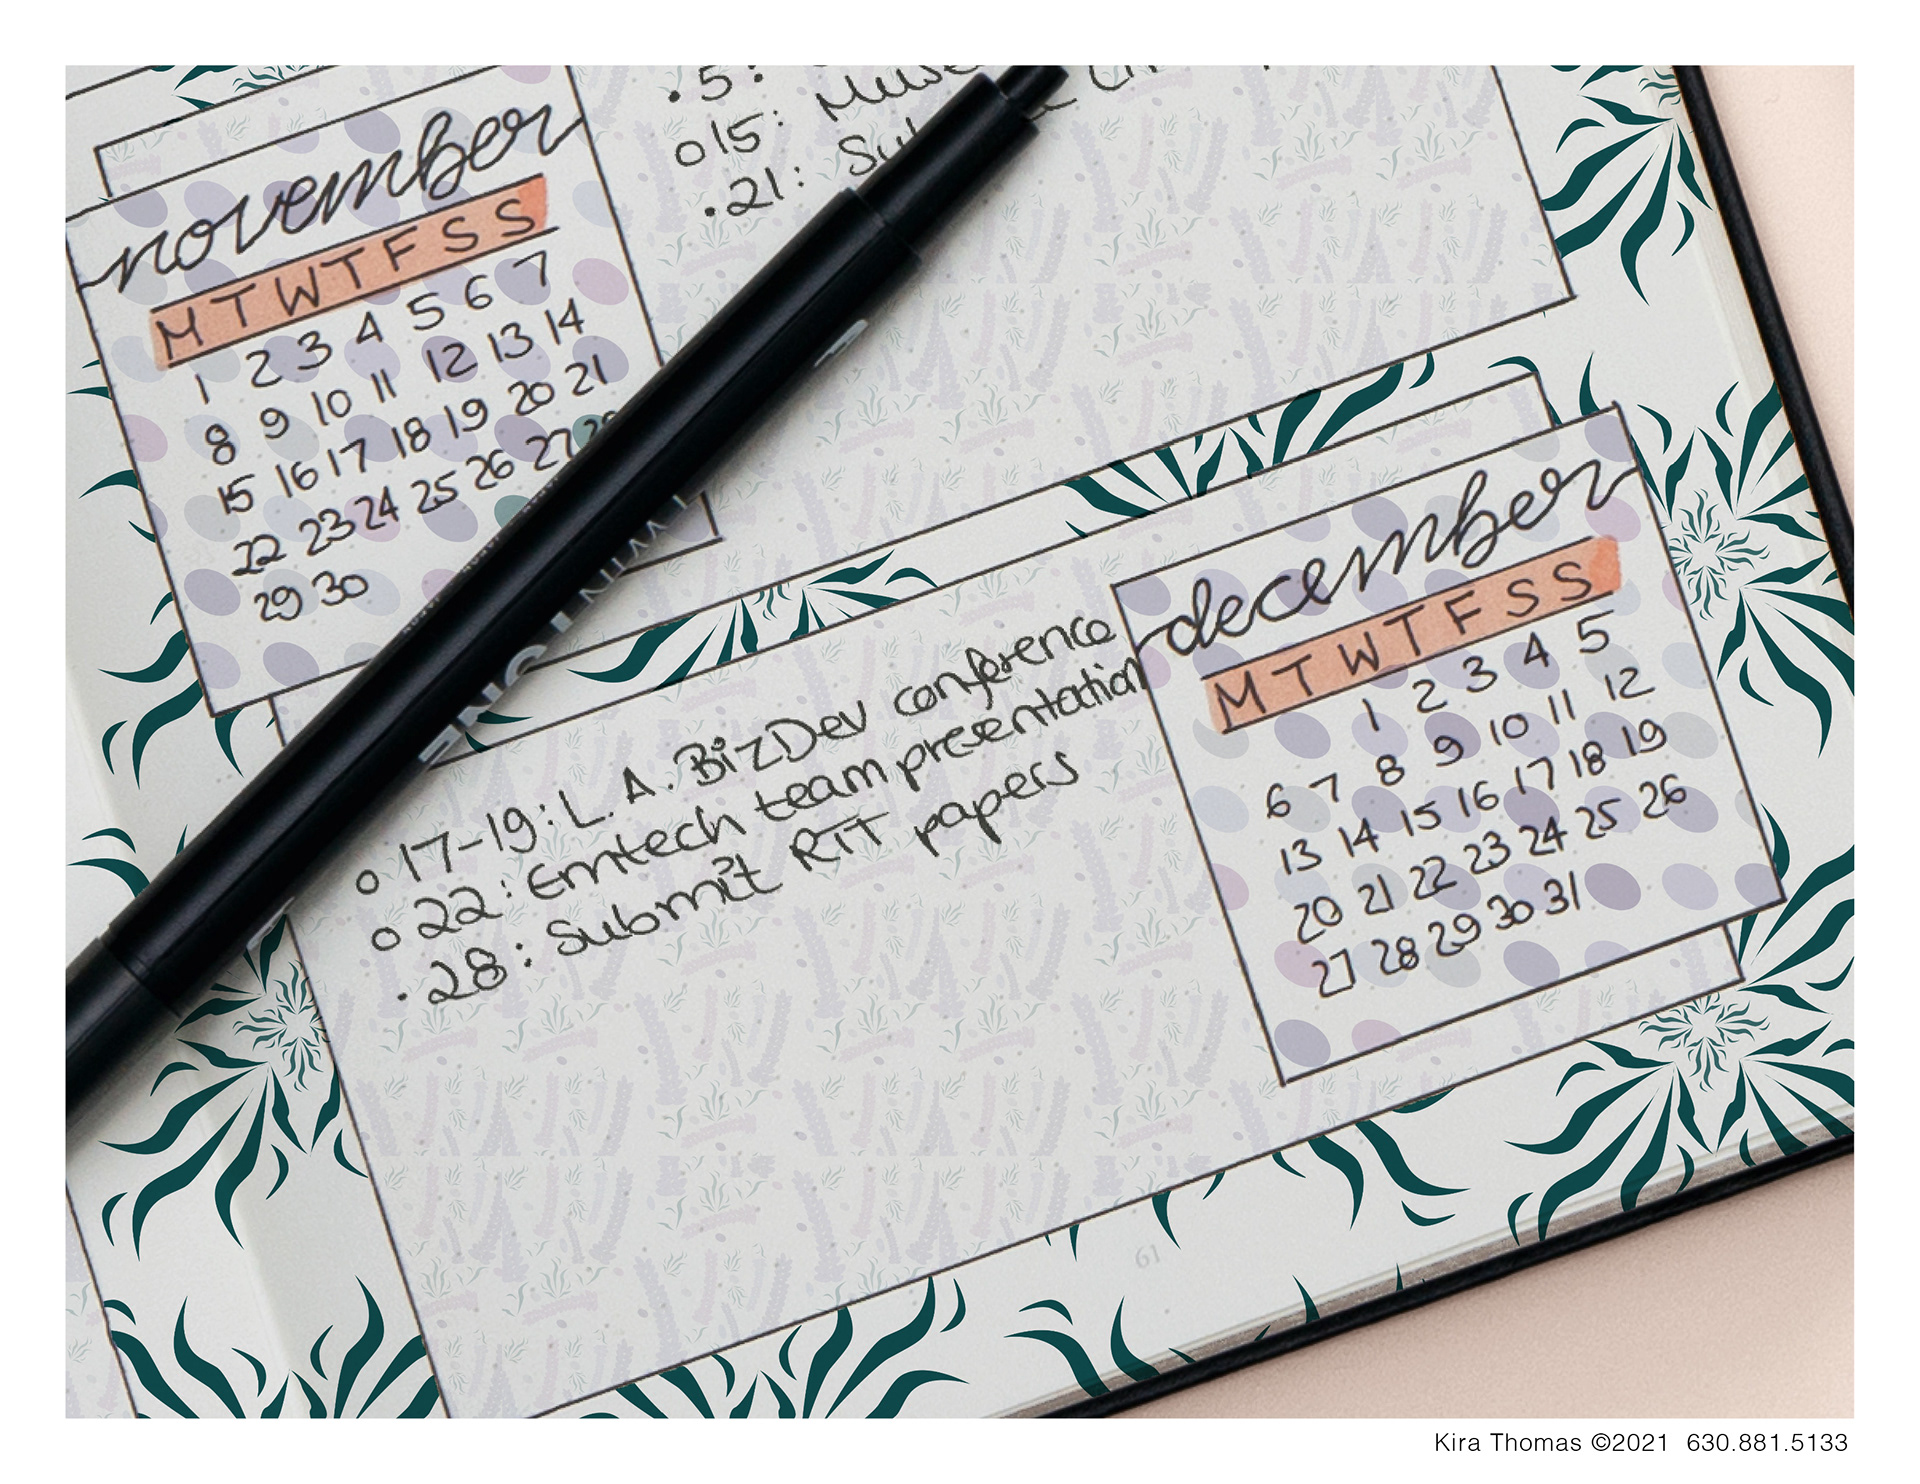 november
M T W T F S S
1 2 3 4 5 6 7
8 9 10 11 12 13 14
15 16 17 18 19 20 21
22 23 24 25 26 27 28
29 30
.5:
o15:
.21:
december
M T W T F S S
1 2 3 4 5
6 7 8 9 10 11 12
13 14 15 16 17 18 19
20 21 22 23 24 25 26
27 28 29 30 31
o 17-19: L. A. BizDev conference
o 22: Emtech team presentation
. 28: Submit RIT papers
61
Kira Thomas ©2021 630.881.5133